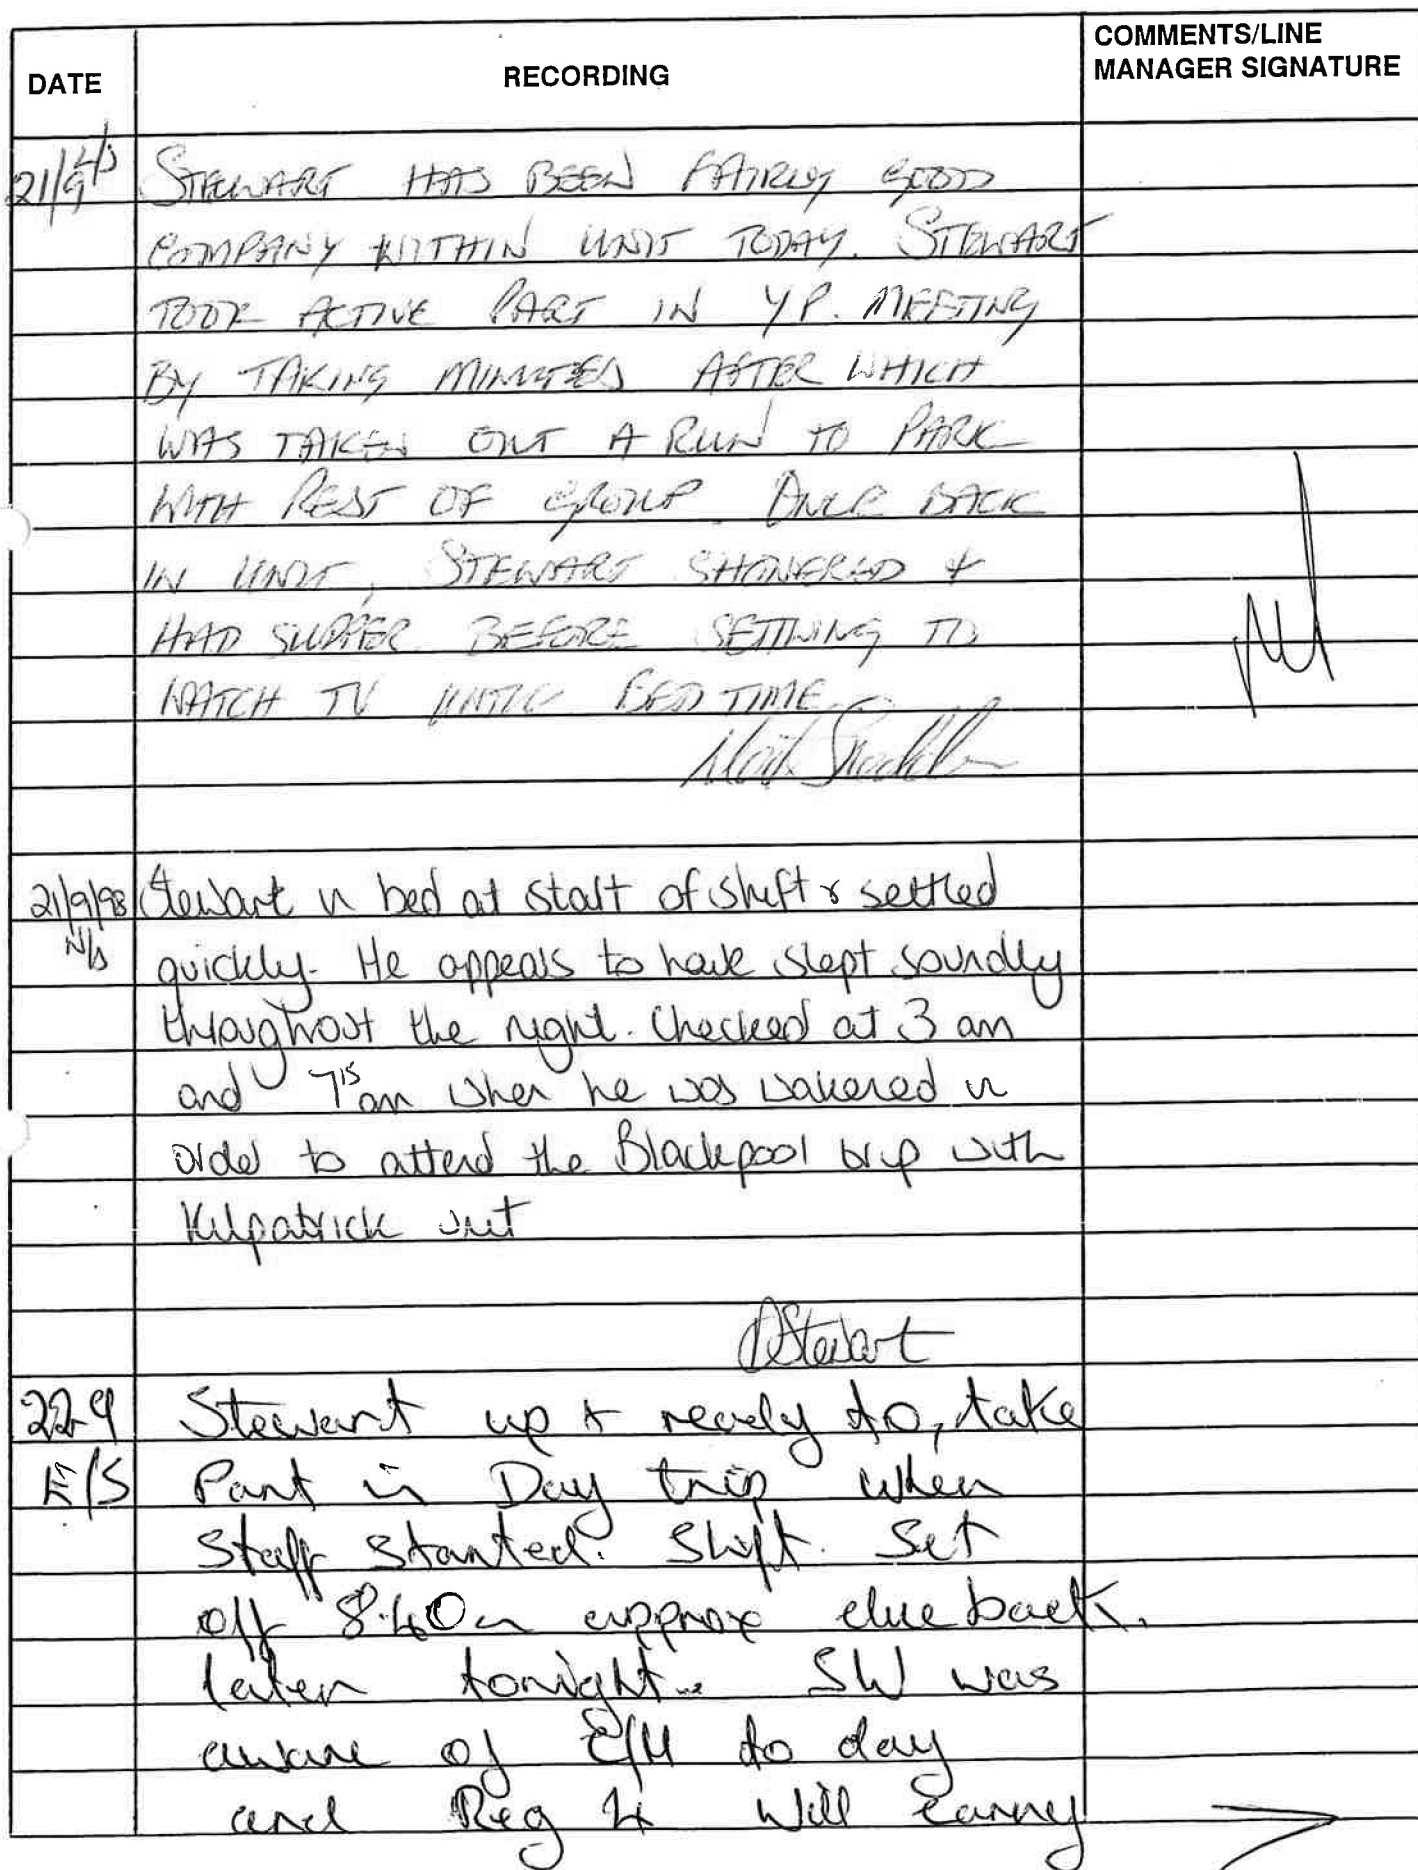 DATE RECORDING COMMENTS/LINE MANAGER SIGNATURE
21/9 L/S STEWART HAS BEEN FAIRLY GOOD
COMPANY WITHIN UNIT TODAY. STEWART
TOOK ACTIVE PART IN YP. MEETING
BY TAKING MINUTES AFTER WHICH
WAS TAKEN OUT A RUN TO PARK
WITH REST OF GROUP. ONCE BACK
IN UNIT, STEWART SHOWERED &
HAD SUPPER BEFORE SETTLING TO
WATCH TV UNTIL BED TIME
21/9/98 Stewart in bed at start of shift & settled
N/S quickly. He appears to have slept soundly
throughout the night. Checked at 3 am
and 7 15 am when he was wakened in
order to attend the Blackpool trip with
Kilpatrick unit
DStewart
22-9 Stewart up & ready to, take
E/S Part in Day trip when
staff started. Shift. Set
off 8.40 approx due back.
later tonight. SW was
aware of E/M to day
and Reg 4 will carry